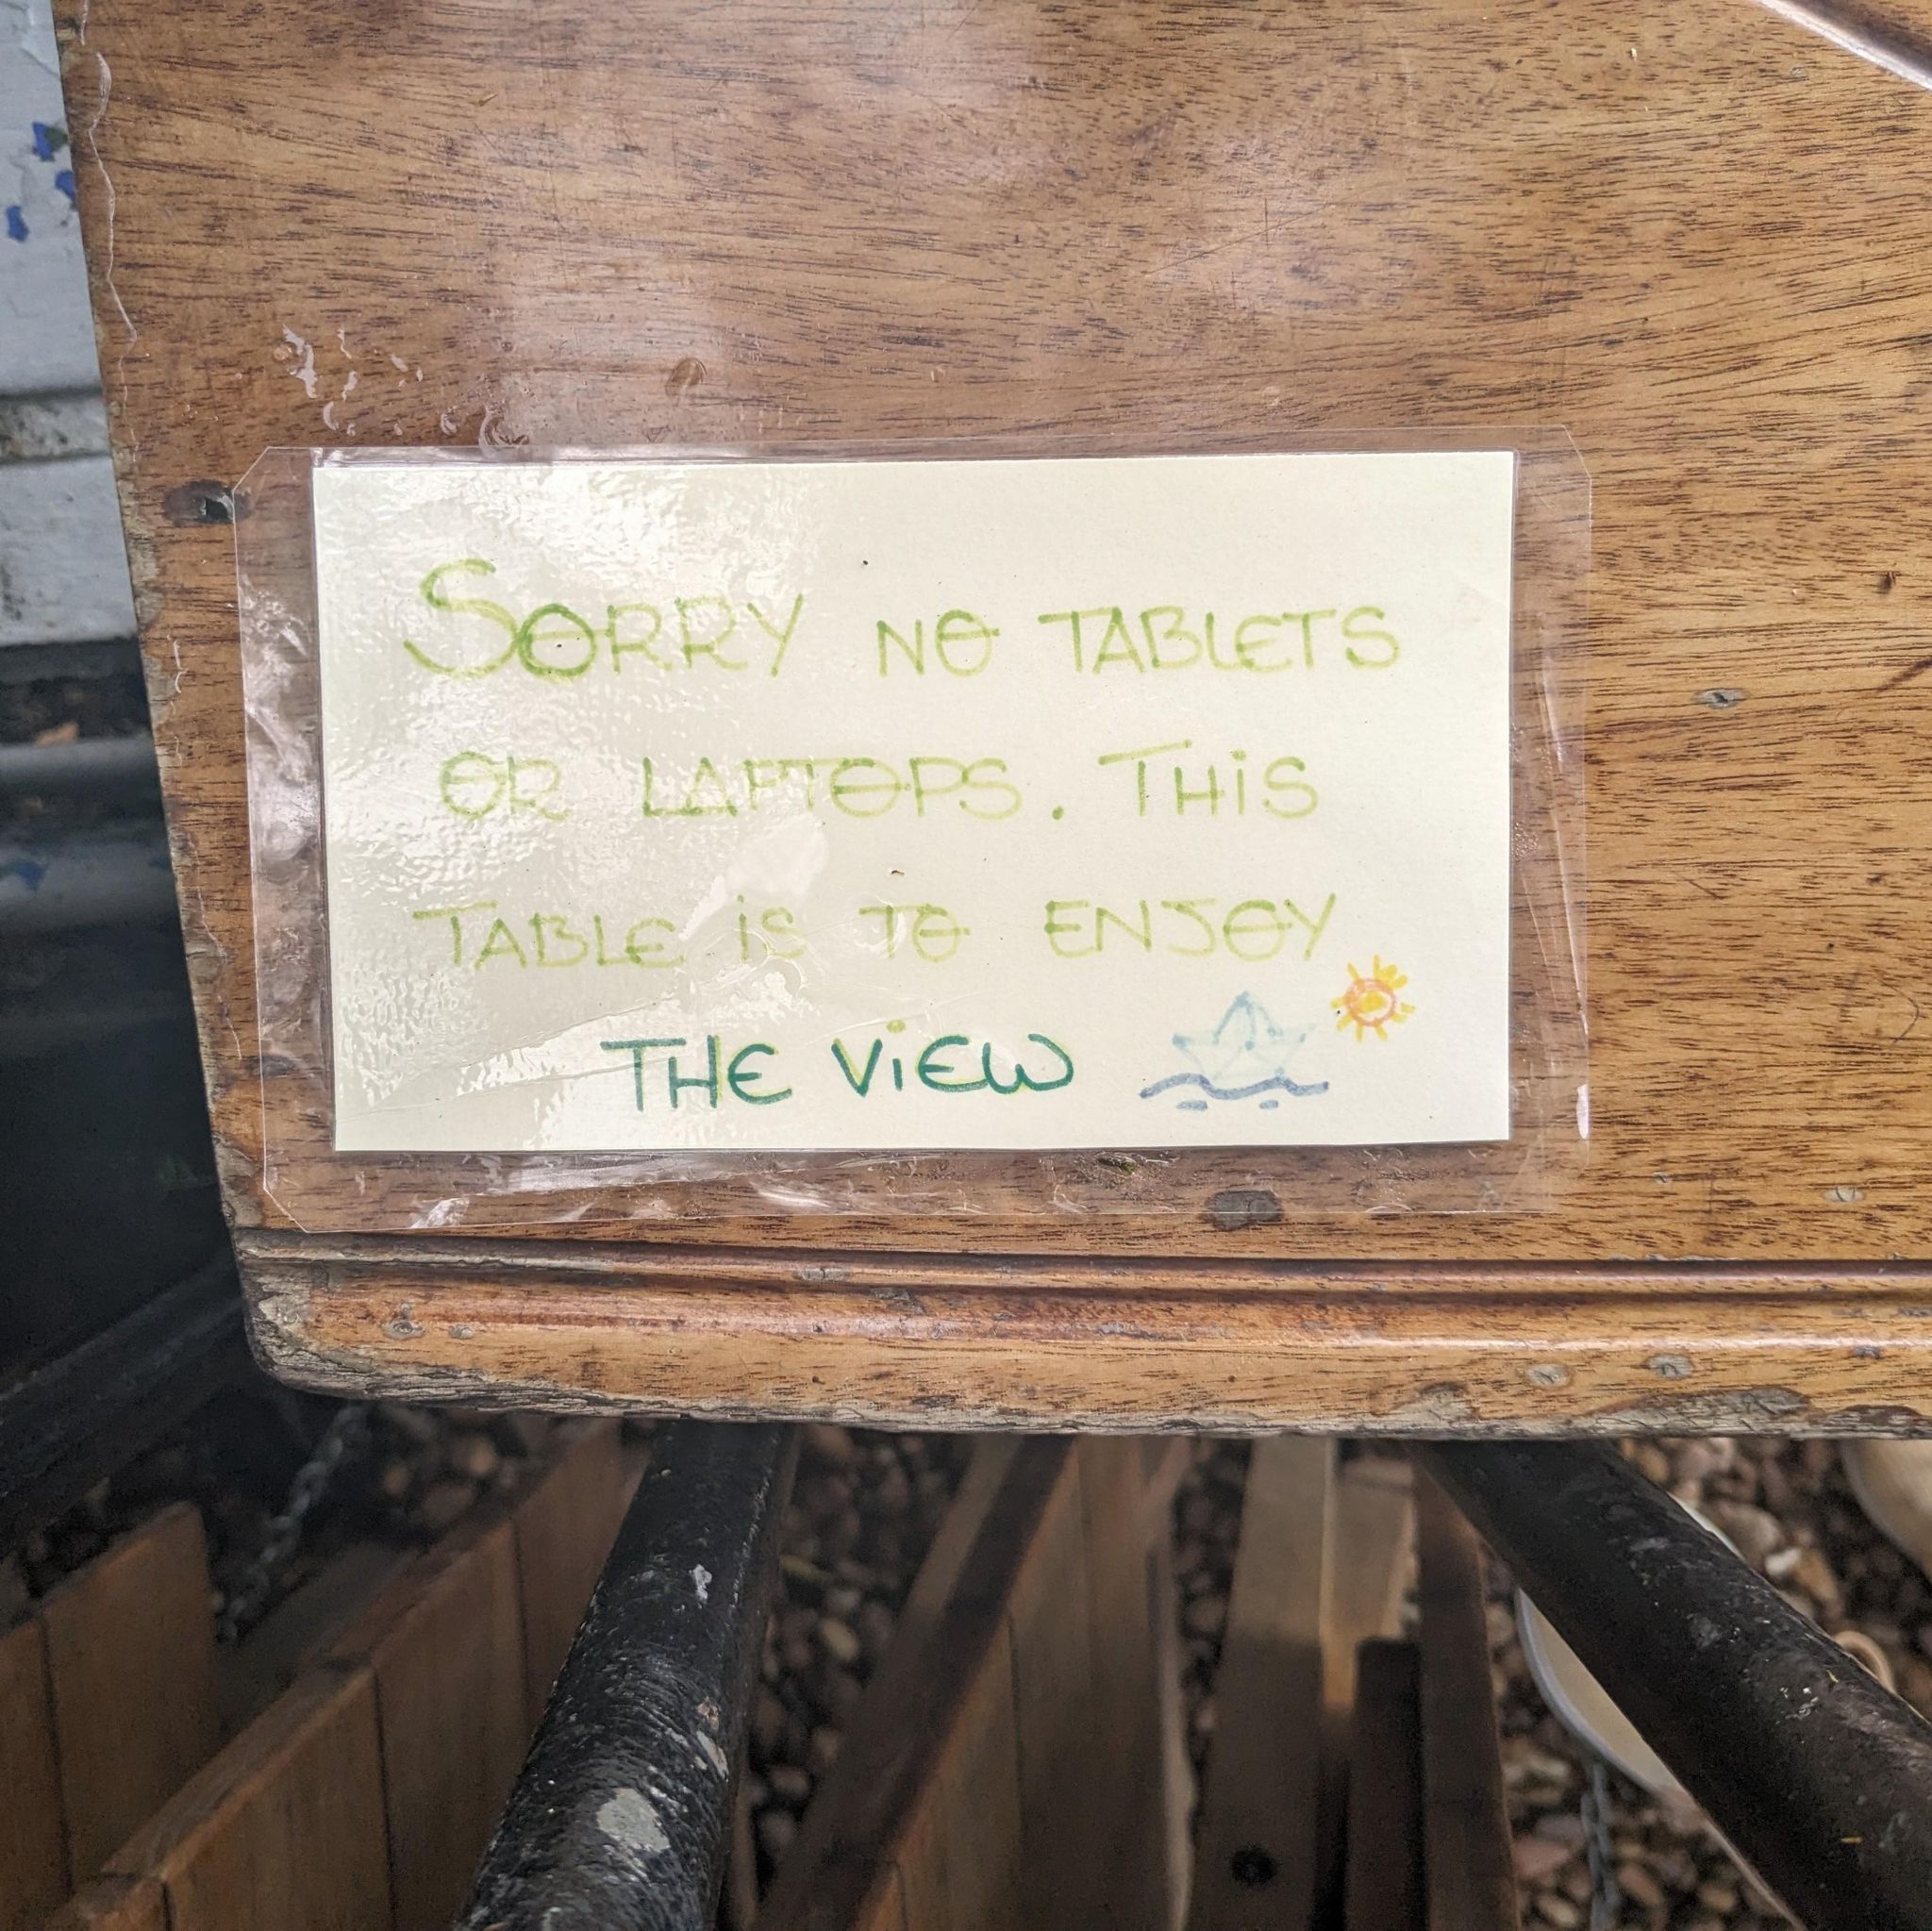 SORRY NO TABLETS
OR LAPTOPS. THiS
TABLE iS TO ENJOY
THE ViEW